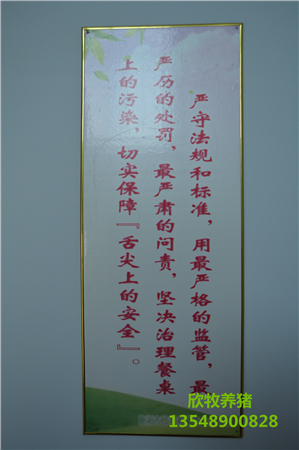 严守法规和标准，用最严格的监管，最
严历的处罚，最严肃的问责，坚决治理餐桌
上的污染，切实保障『舌尖上的安全』。
欣牧养猪
13548900828